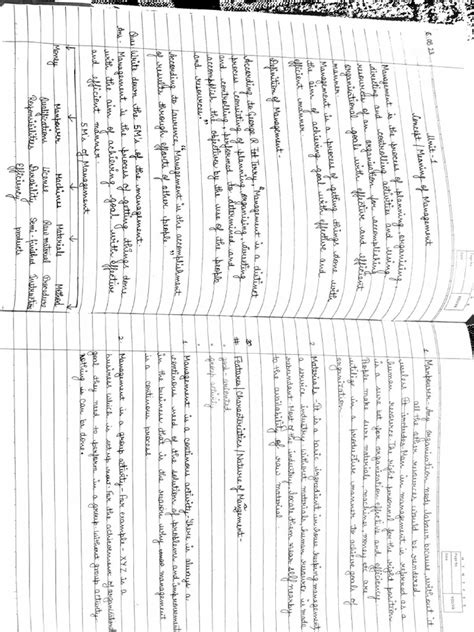 6.05.23
Unit - 1
Concept / Meaning of Management
Management is the process of planning, organising,
directing and controlling activities and using
resources of an organisation for accomplishing
organisational goals with effective and efficient
manner.
Management is a process of getting things done with
the aim of achieving goal with effective and
efficient manner
Definition of Management -
According to George R. Terry "Management is a distinct
process consisting of planning, organizing, directing
and controlling, performed to determined and
accomplish the objectives by the use of the people
and resources".
According to Lawrence, "Management is the accomplishment
of results through efforts of other people"
Ques Write down the 5Ms of the management.
Ans. Management is the process of getting things done
with the aim of achieving goal with effective
and efficient manner.
5Ms of Management
Money Manpower Machines Materials Method
Qualifications License Raw material Procedure
Responsibilities Durability Semi-finished Instruction
Efficiency products
1. Manpower - Any organisation needs labour because without it
all the other resources would be rendered
useless. It includes then in management is referred as a
human resource. The right personnel for the right position
is a sure set for organisation effective and efficiency.
People make sure materials, machines, money etc are
utilize in a productive manner to achieve goals of
organization.
2. Materials - It is a basic ingredient in some keeping management
a service industry without materials, human resource is made
dependent. Most of the industry locate them near self nearby
to the availability of raw material
# Features/Characteristics/Nature of Management -
• goal-oriented
• group activity
1. Management is a continuous activity - There is always a
continuous need of the solution of problems and improvement
in the business that is the reason why management
is a continuous process
2. Management is a group activity - For example - XYZ is a
business which is setup need for the achievement of organizational
goal they need to perform in a group without group activity
nothing is can be done.